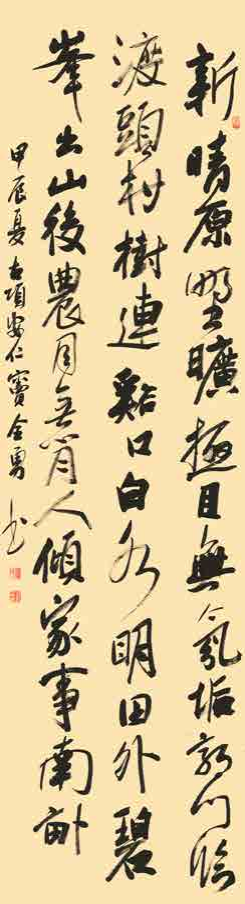 新晴原野曠極目無氛垢郭门臨
渡頭村樹連谿口白水明田外碧
峯出山後農月无閒人傾家事南畝
甲辰夏古項安仁竇全勇书